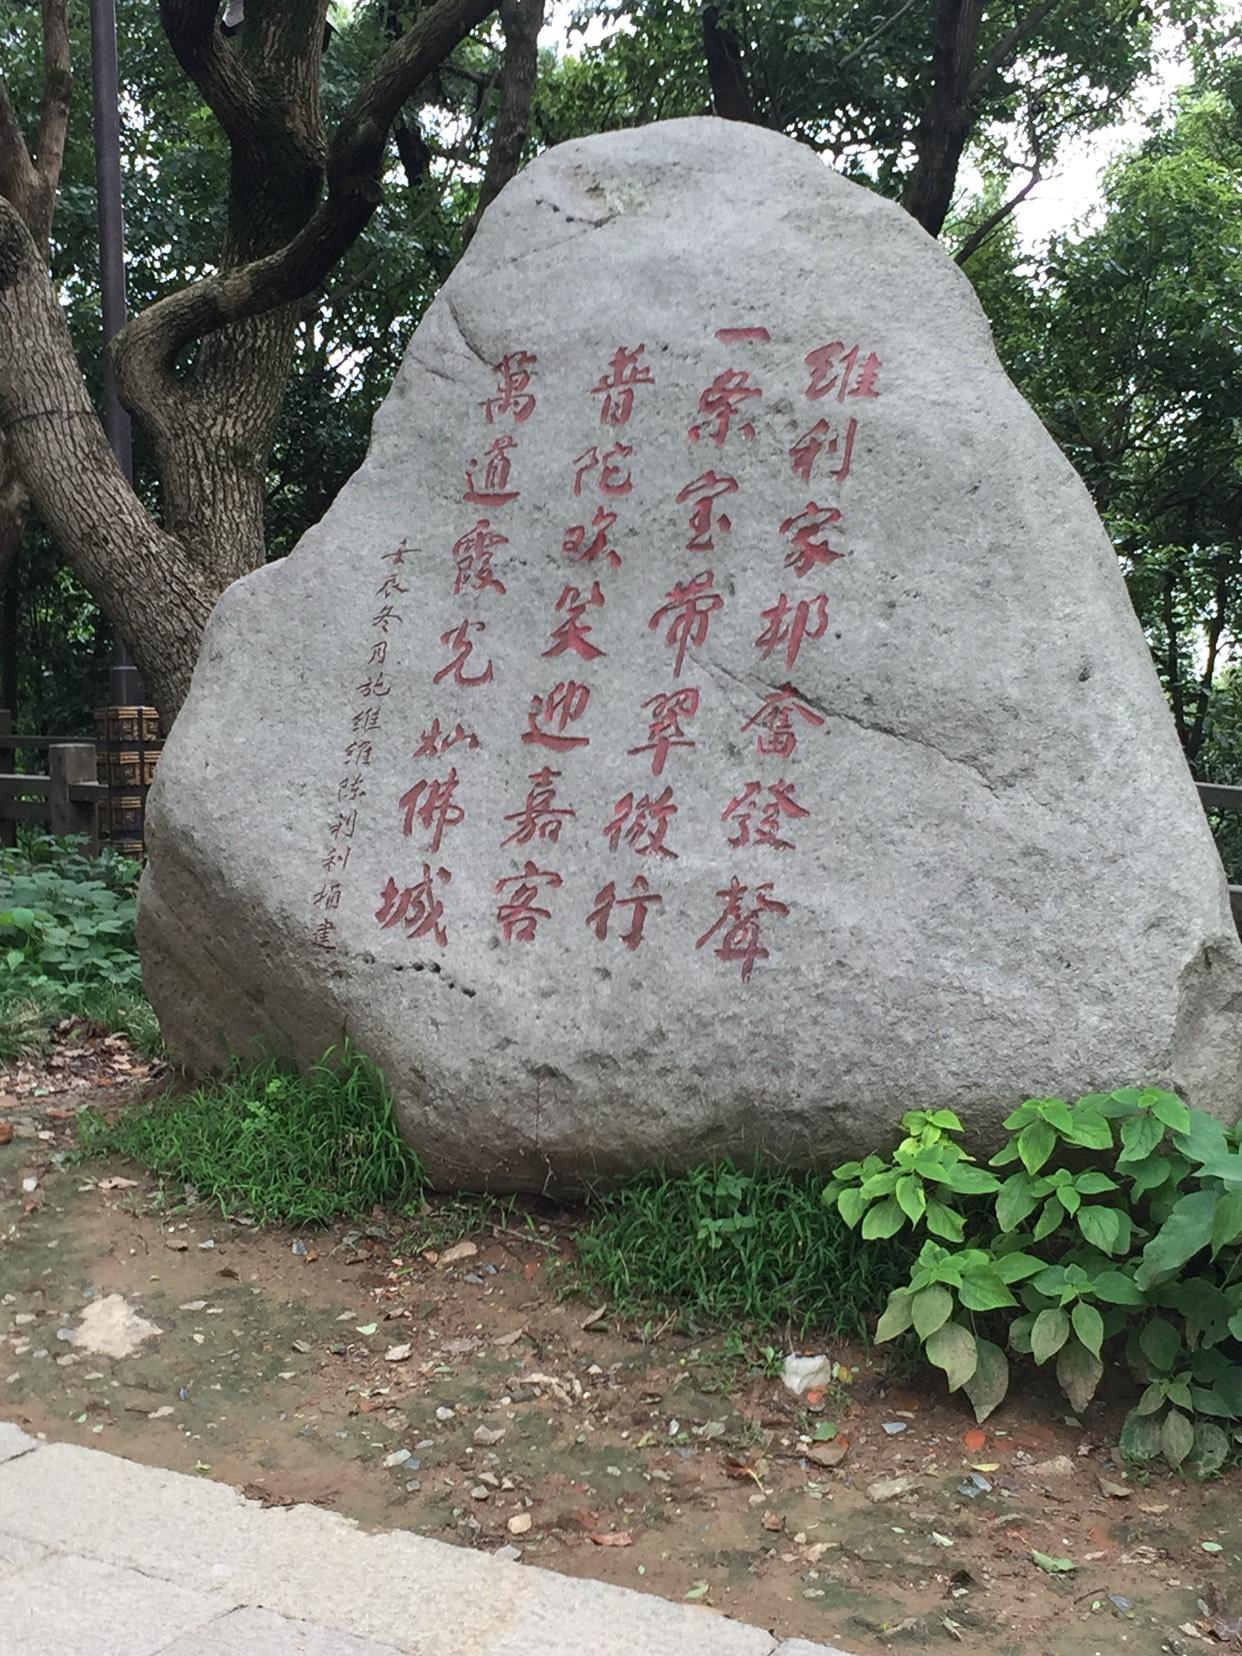 維利家邦奮發聲
一条宝帶翠微行
普陀欢笑迎嘉客
萬道霞光灿佛城
壬辰冬月施維維陈利利捐建